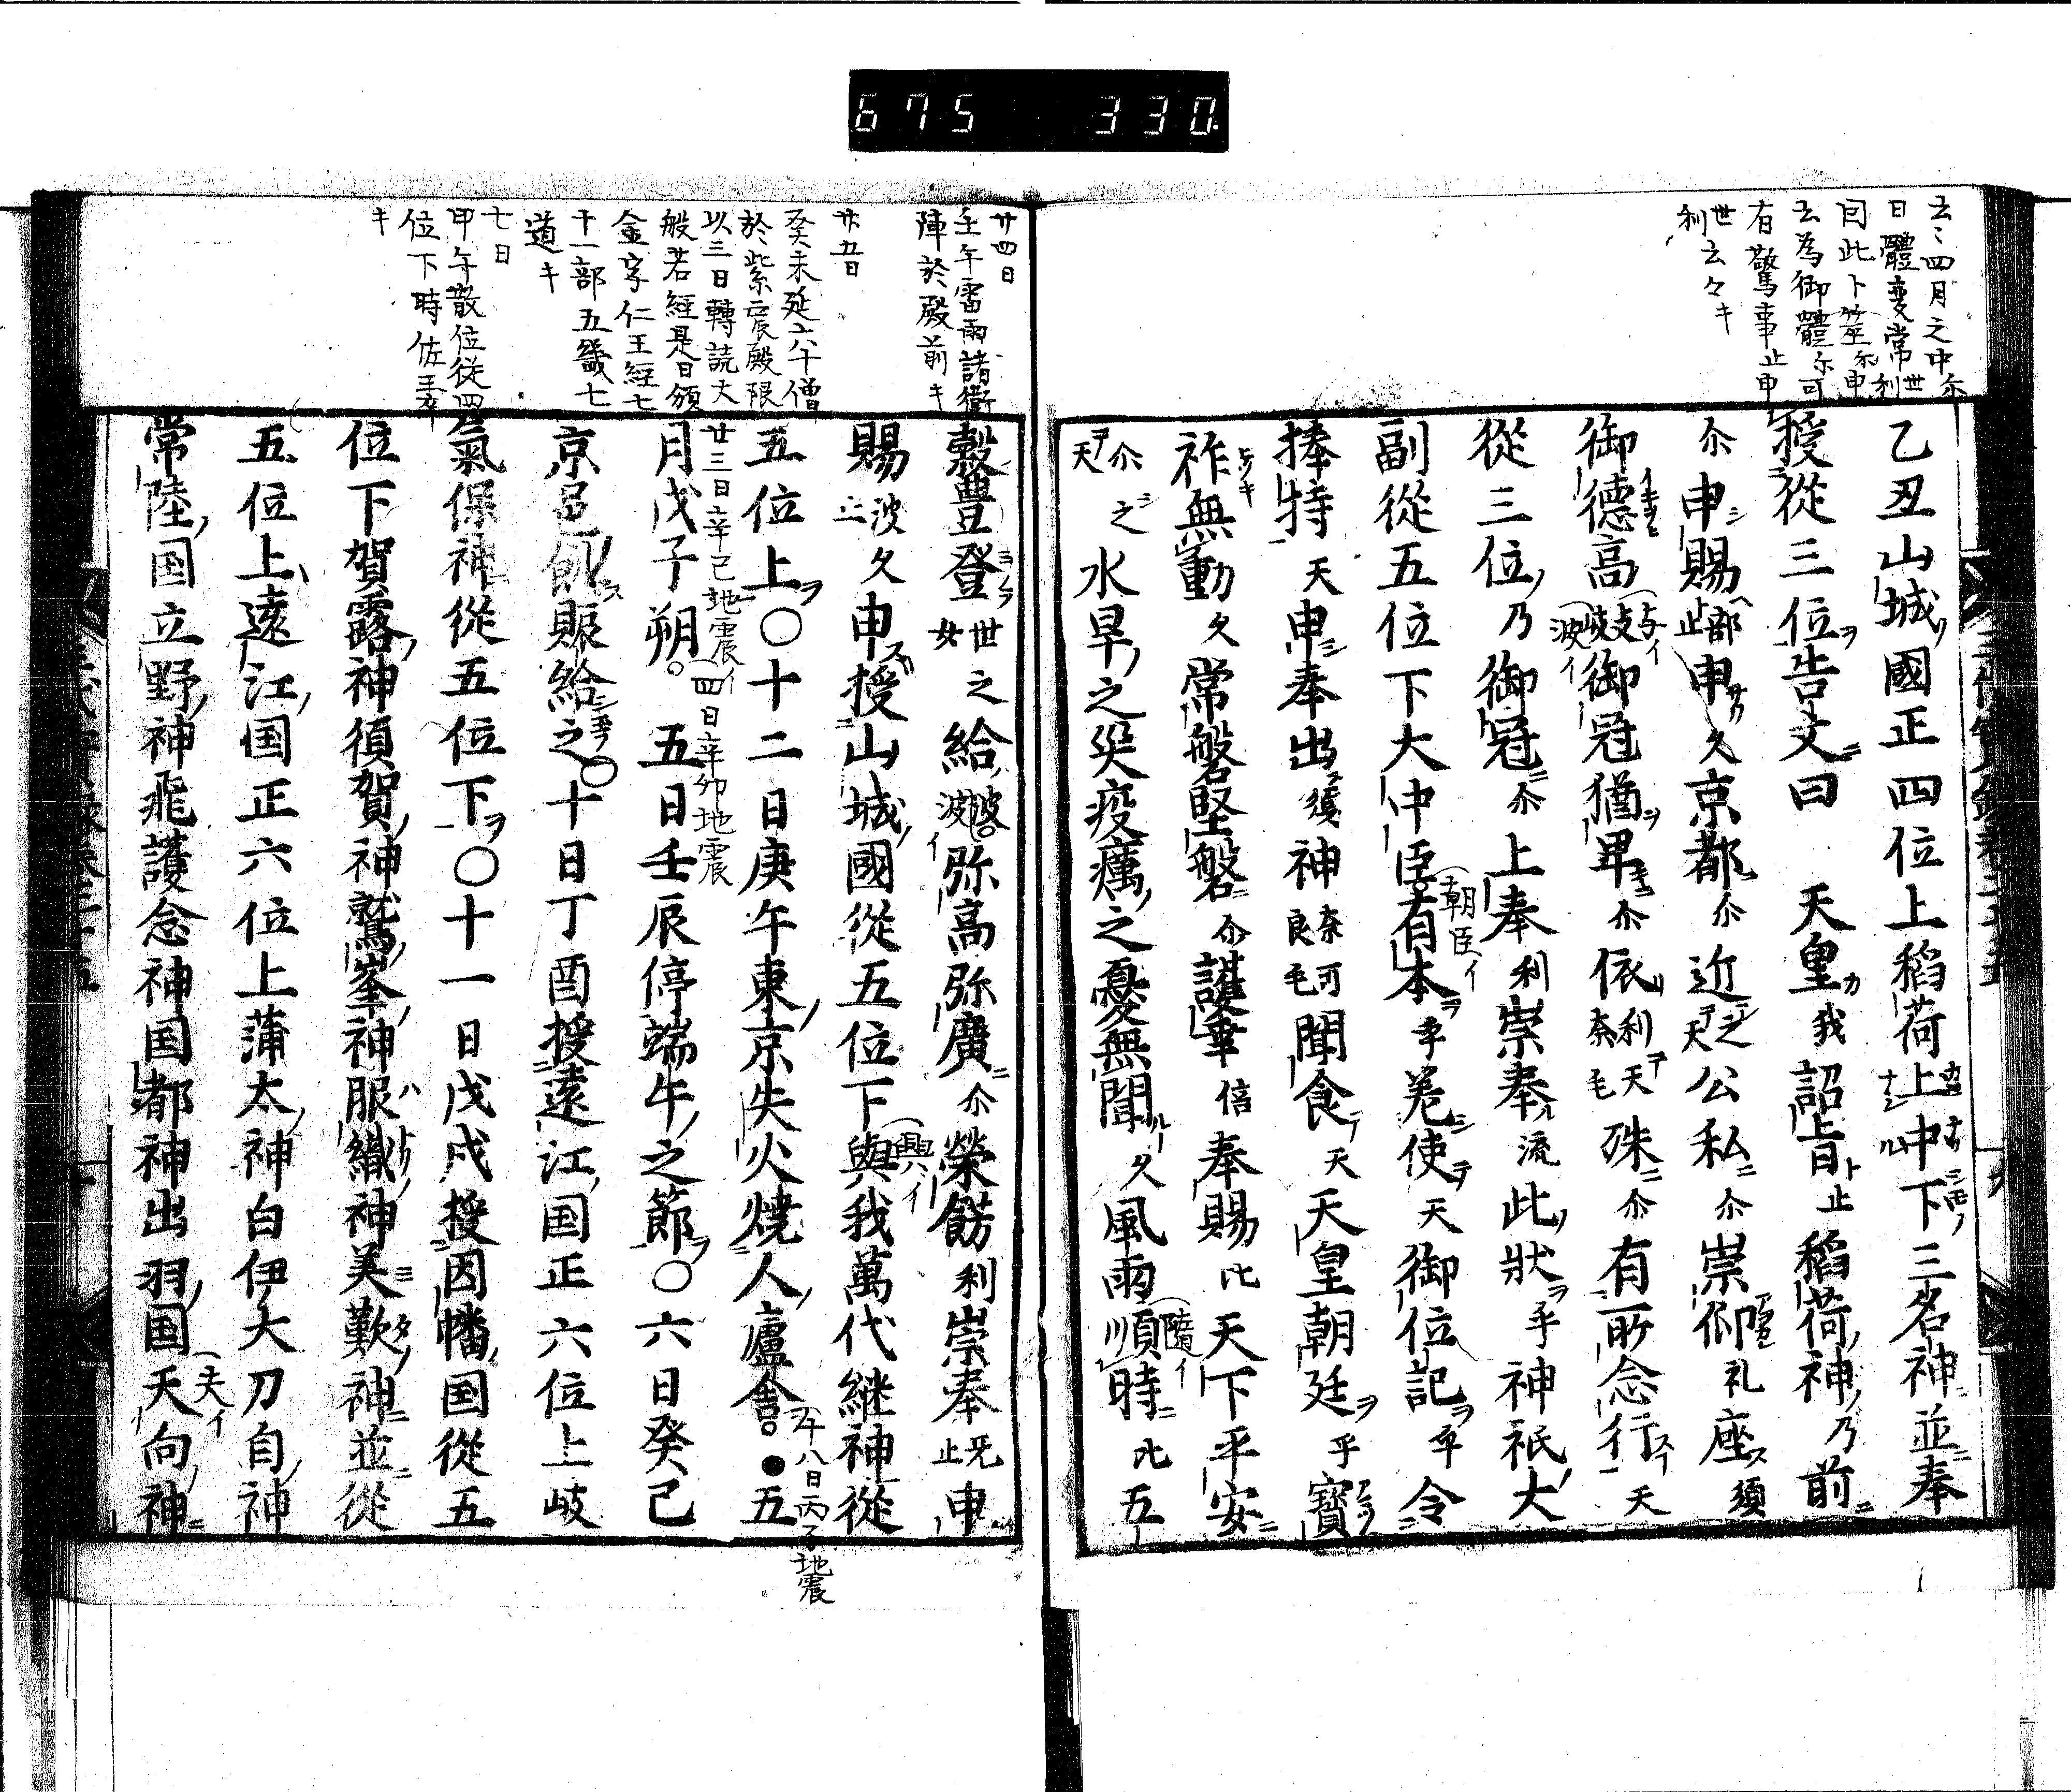 675 330
云〻四月之中尓
日體変常世利
因此卜筮尓申
云為御體尓可
有驚事止申
世利云々キ
乙丑山城國正四位上稻荷上中下三名神並奉
授從三位告文曰 天皇我詔旨止稻荷神乃前
尓申賜部止申久京都尓近之天公私尓崇仰礼座須
御德高支岐御冠猶卑尓依利天奈毛殊尓有所念行天
從三位乃御冠尓上奉利崇奉流此狀乎神祇大
副從五位下大中臣有本乎差使天御位記乎令
捧持天申奉出須神奈良可毛聞食天天皇朝廷乎寳
祚無動久常磐堅磐尓護幸倍奉賜比天下平安
尓天之水旱之災疫癘之憂無聞久風雨順時比五
廿四日
壬午雷雨諸衛
陣於殿前キ
廿五日
癸未延六十僧
於紫宸殿限
以三日轉読大
般若經是日頒
金字仁王經七
十一部五畿七
道キ
七日
甲午散位従四
位下時佐王卒
キ
穀豊登世女之給波弥高弥廣尓榮餝利崇奉牟止申
賜波久申授山城國從五位下與我萬代継神從
五位上〇十二日庚午東京失火燒人廬舎●五
十八日丙子地震
廿三日辛巳地震イ 四日辛卯地震
月戊子朔。五日壬辰停端午之節〇六日癸己
京邑飢賑給之〇十日丁酉授遠江国正六位上岐
氣保神從五位下〇十一日戊戌授因幡国從五
位下賀露神須賀神鷲峯神服織神美歎神並從
五位上遠江国正六位上蒲太神白伊大刀自神
常陸国立野神飛護念神国都神出羽国天向神